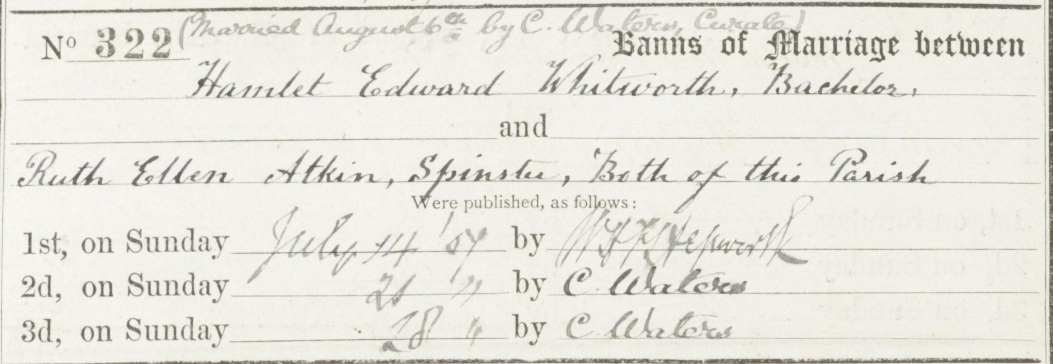 (Married August 6th by C. Waters, Curate)
No 322 Banns of Marriage between
Hamlet Edward Whitworth, Bachelor,
and
Ruth Ellen Atkin, Spinster, Both of this Parish
Were published, as follows:
1st, on Sunday July 14 '07 by
2d, on Sunday 21 " by C. Waters
3d, on Sunday 28 " by C. Waters